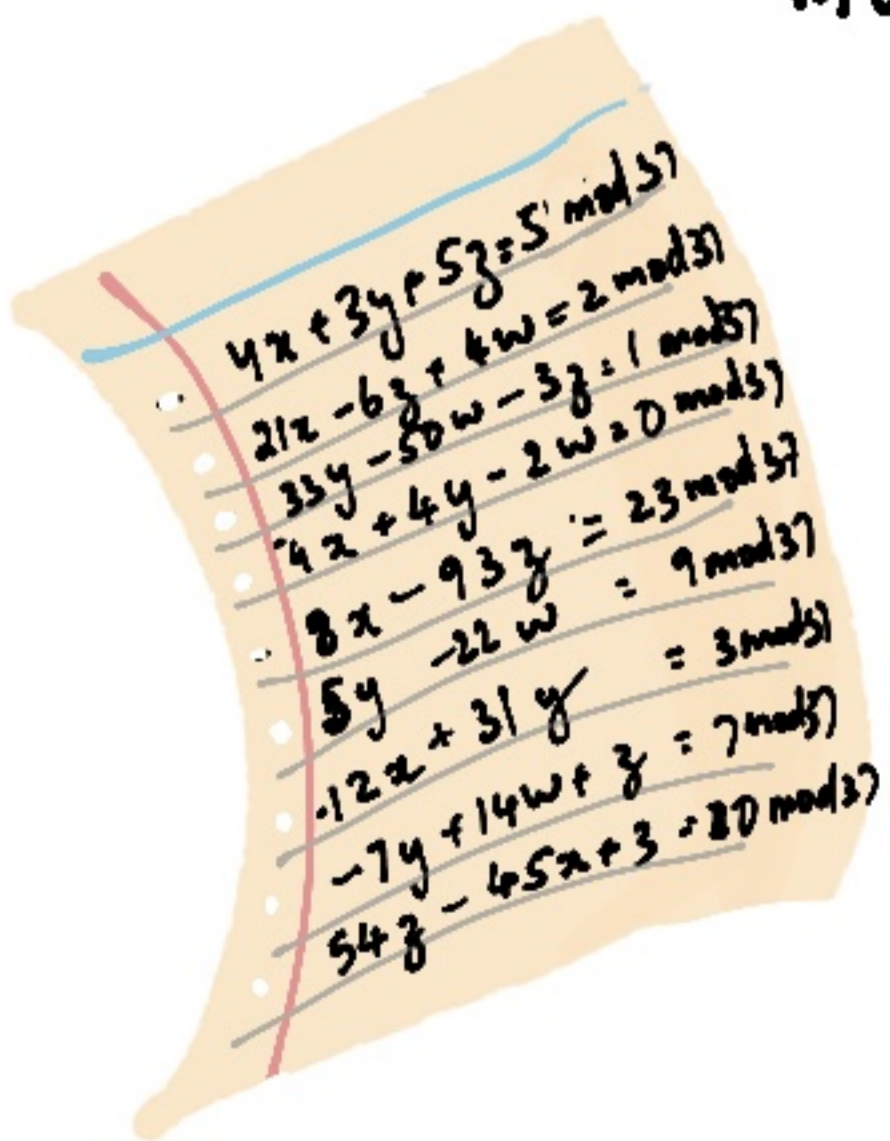 4x + 3y + 5z = 5 mod 37
21x - 6z + 4w = 2 mod 37
33y - 50w - 3z = 1 mod 37
-4x + 4y - 2w = 0 mod 37
8x - 93z = 23 mod 37
5y - 22w = 9 mod 37
-12x + 31y = 3 mod 37
-7y + 14w + z = 7 mod 37
54z - 45x + 3 = 20 mod 37